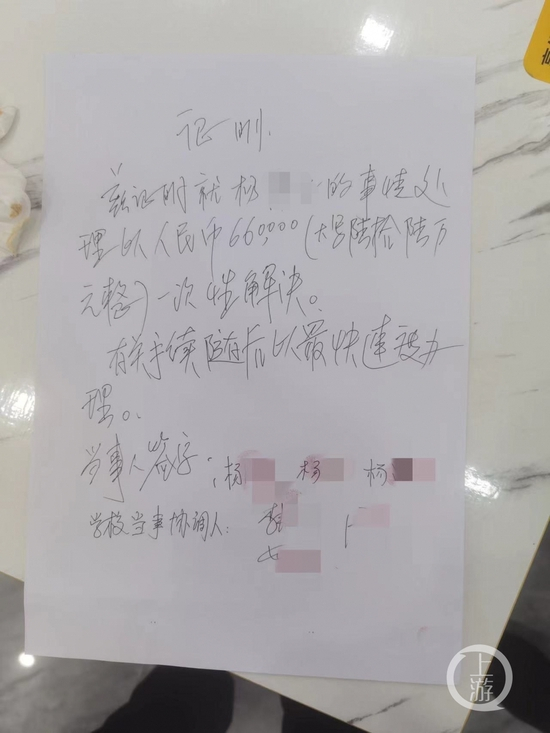 证明
兹证明就杨的事情处
理以人民币660000(大写陆拾陆万
元整)一次性解决。
有关手续随后以最快速度办
理。
当事人签字: 杨 杨 杨
学校当事协调人:
上游